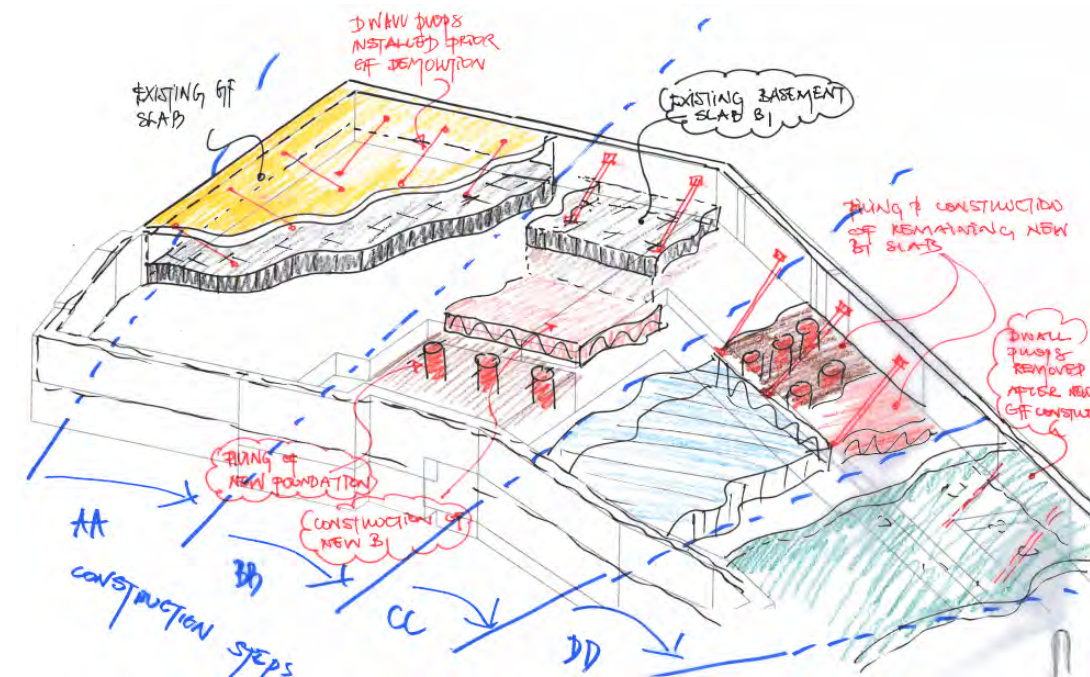 DWALL PROPS
INSTALLED PRIOR
GF DEMOLITION
EXISTING GF
SLAB
EXISTING BASEMENT
SLAB B1
PILING & CONSTRUCTION
OF REMAINING NEW
B1 SLAB
DWALL
PROPS
REMOVED
AFTER NEW
GF
PILING OF
NEW FOUNDATION
CONSTRUCTION OF
NEW B1
AA
BB
CC
DD
CONSTRUCTION STEPS